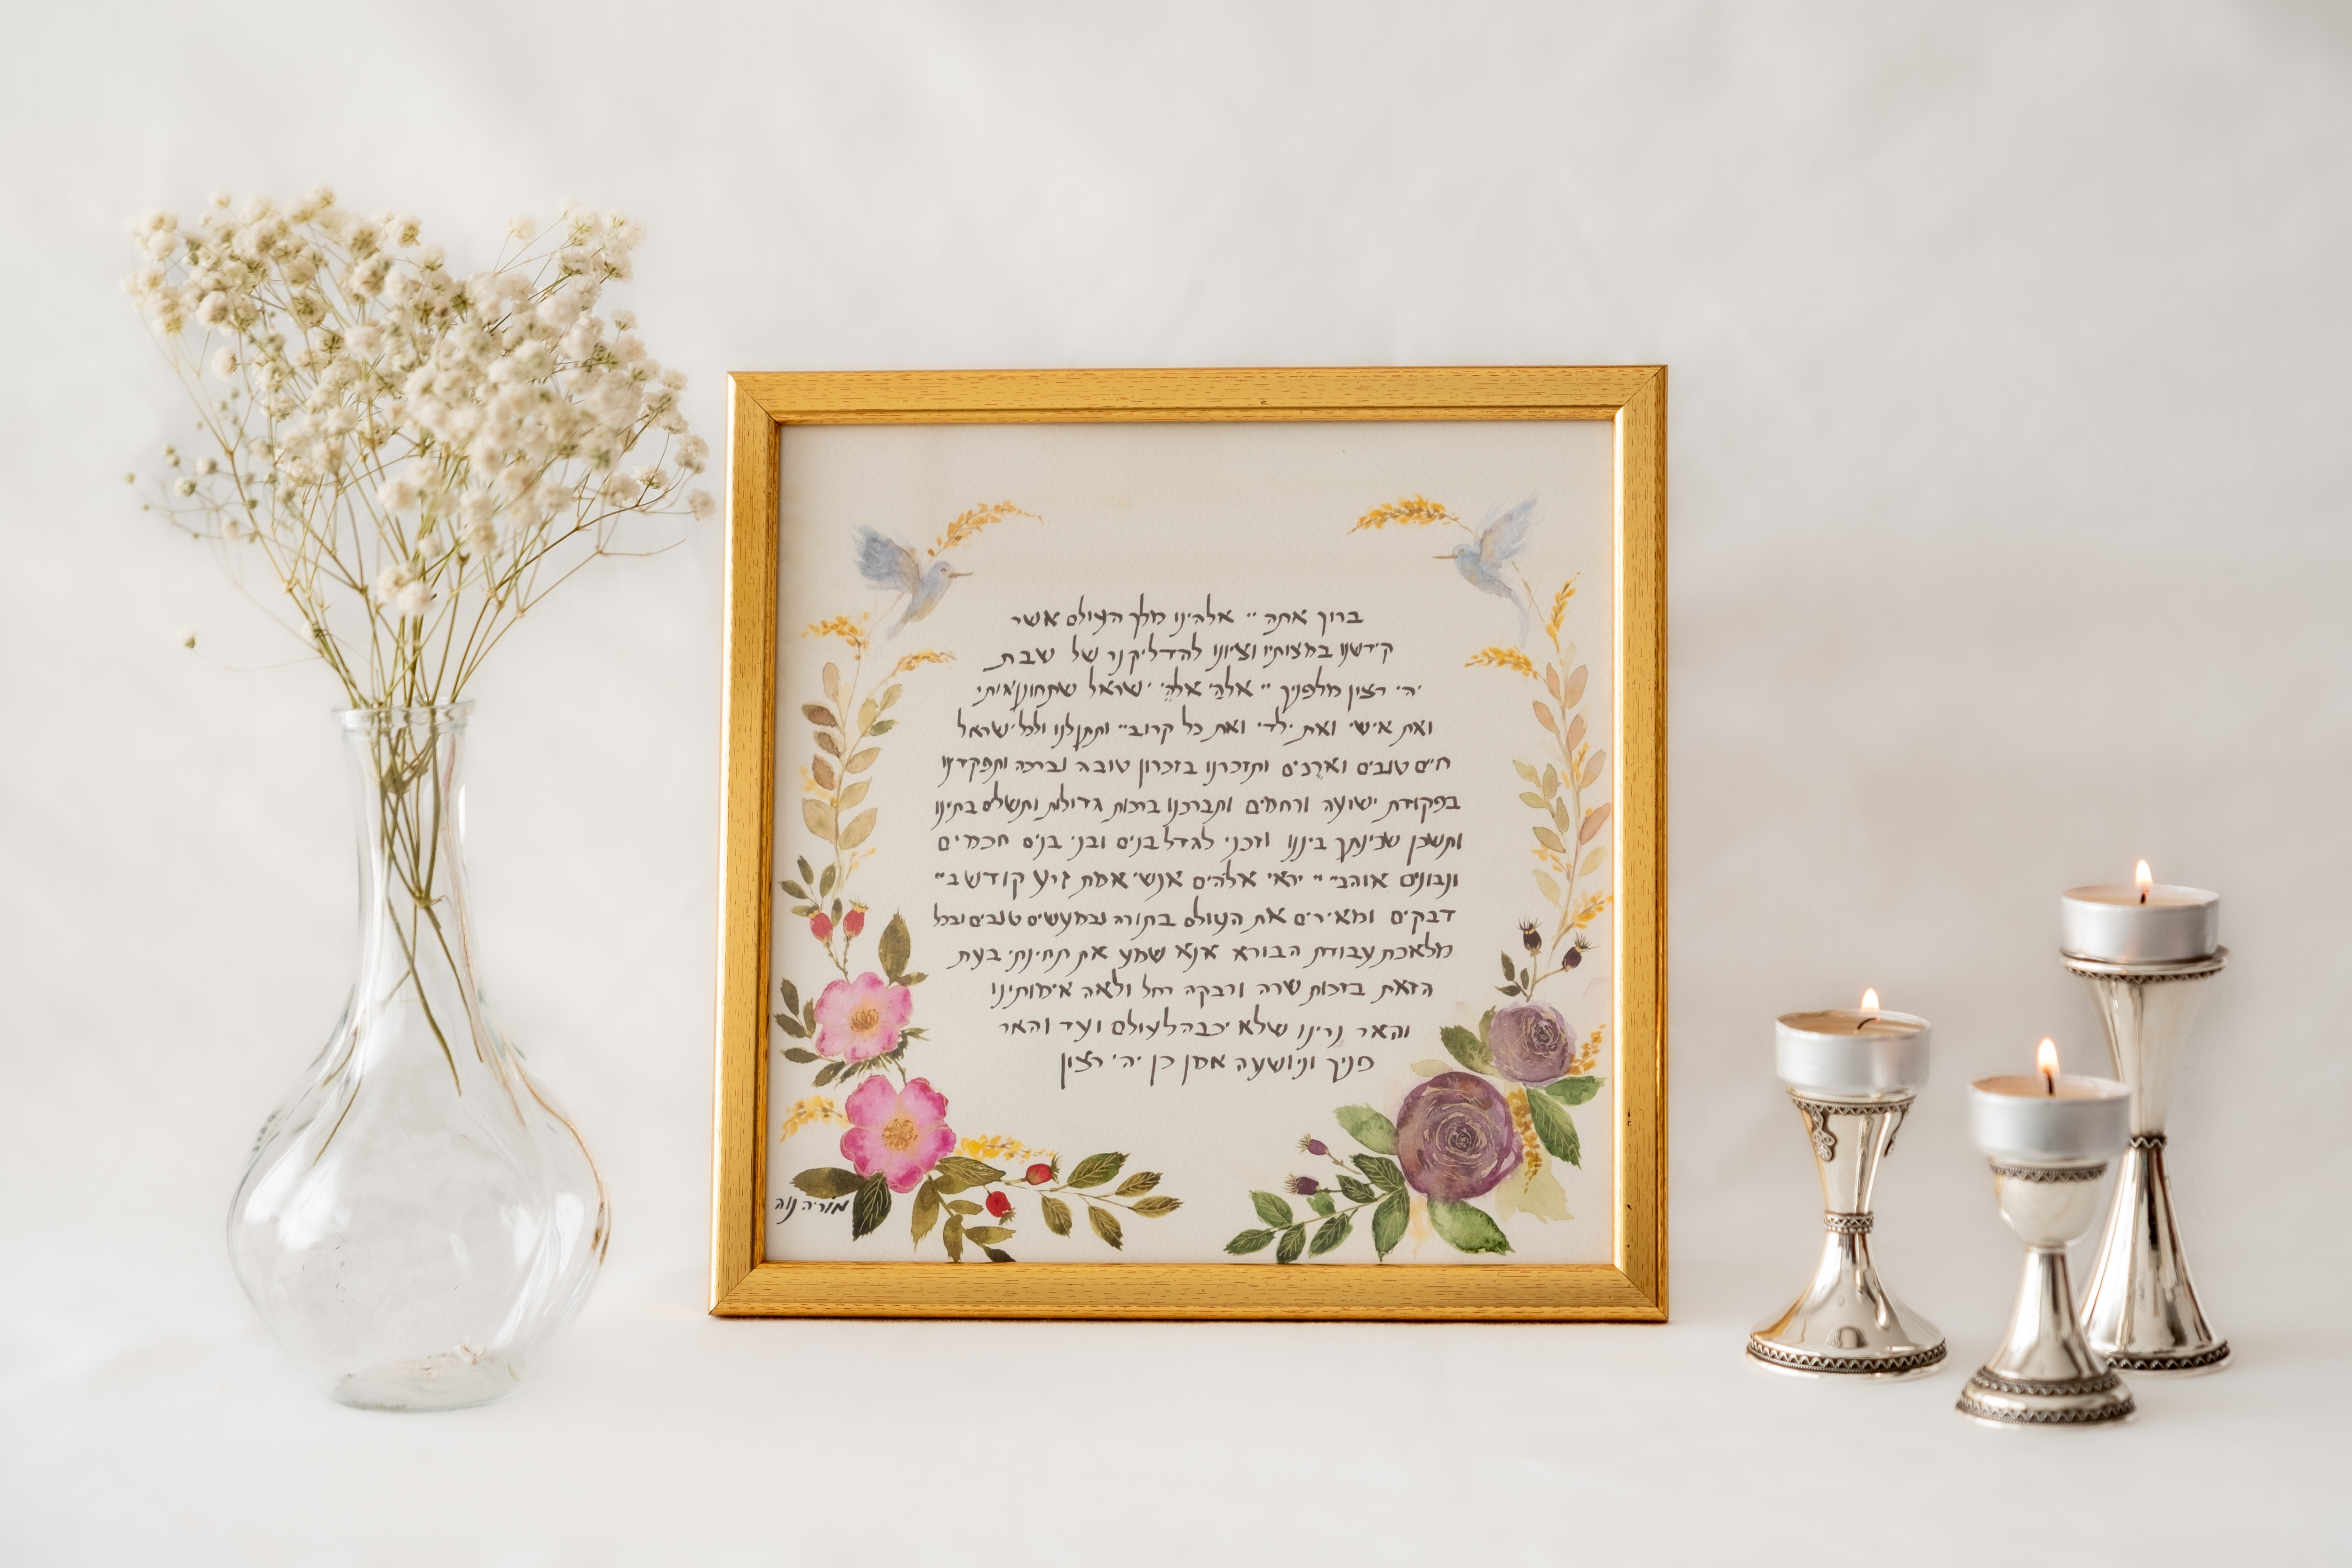 ברוך אתה יי אלהינו מלך העולם אשר
קידשנו במצותיו וציונו להדליק נר של שבת
יהי רצון מלפניך יי אלהי אלהי ישראל שתחונן אותי
ואת אישי ואת ילדי ואת כל קרובי ותתן לנו ולכל ישראל
חיים טובים וארכים ותזכרנו בזכרון טובה וברכה ותפקדנו
בפקודת ישועה ורחמים ותברכנו ברכות גדולות ותשלם בתינו
ותשכן שכינתך בינינו וזכני לגדל בנים ובני בנים חכמים
ונבונים אוהבי יי יראי אלהים אנשי אמת זרע קודש ביי
דבקים ומאירים את העולם בתורה ובמעשים טובים ובכל
מלאכת עבודת הבורא אנא שמע את תחינתי בעת
הזאת בזכות שרה ורבקה רחל ולאה אימותינו
והאר נרינו שלא יכבה לעולם ועד והאר
פניך וניושעה אמן כן יהי רצון
מוריה נוה